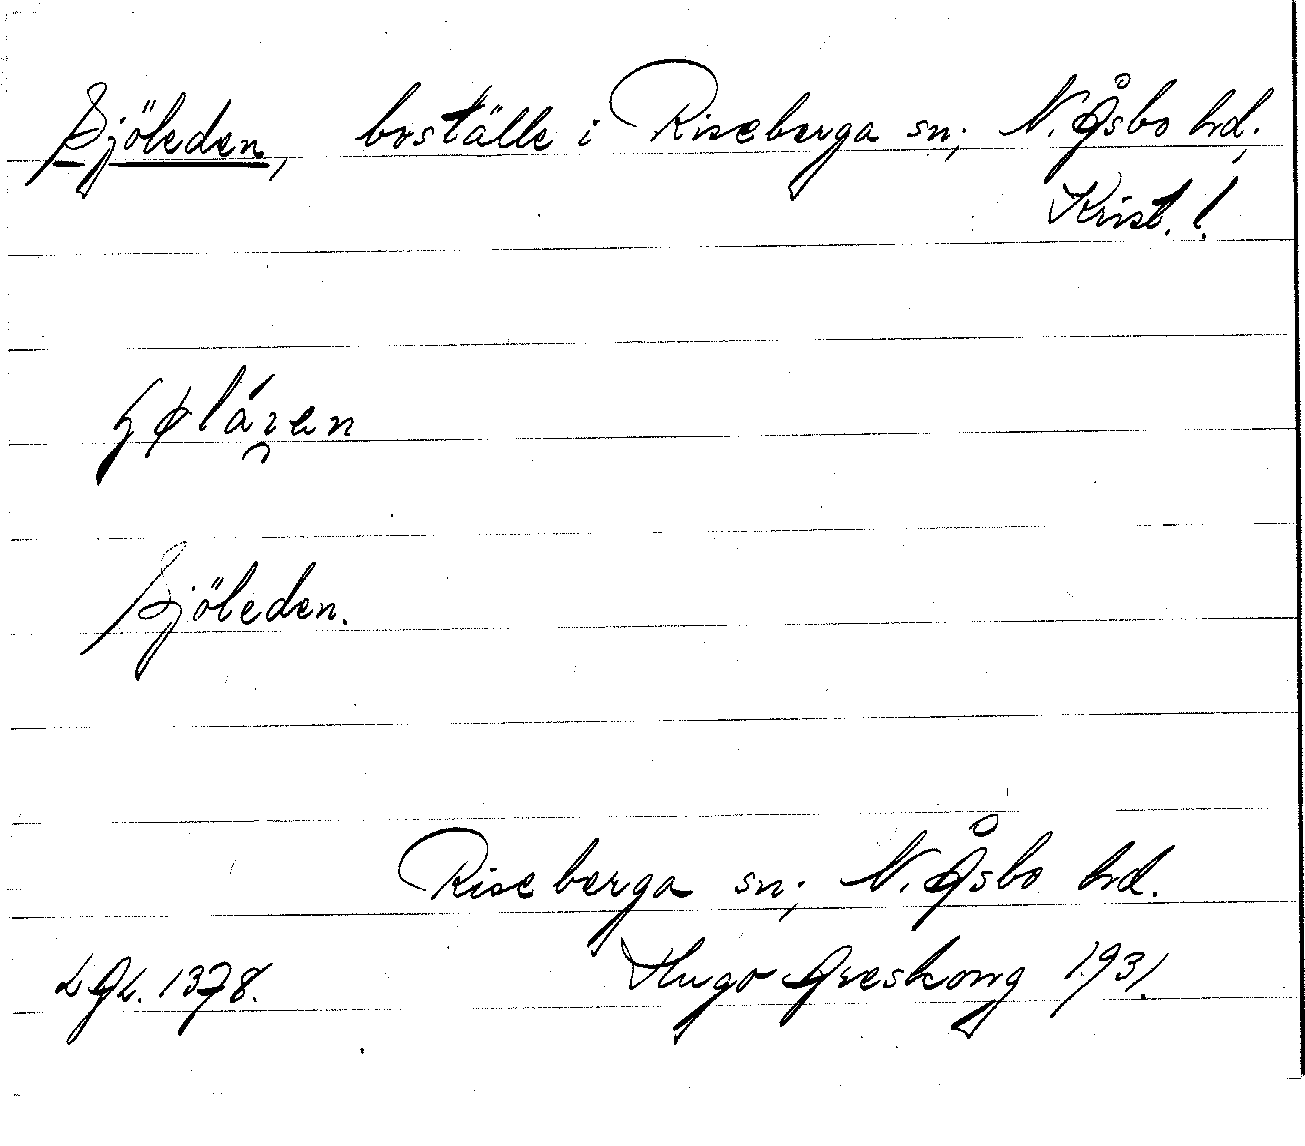 Sjöleden, boställe i Riseberga sn; N. Åsbo hd.,
Krist. l.
Sjöleden.
Riseberga sn; N. Åsbo hd.
Hugo Areskoug 1931.
LGL. 1378.